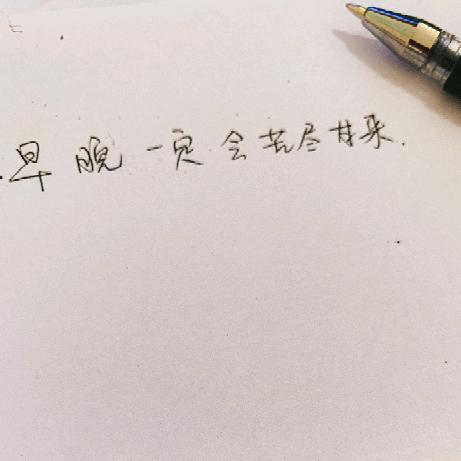 早晚一定会苦尽甘来.